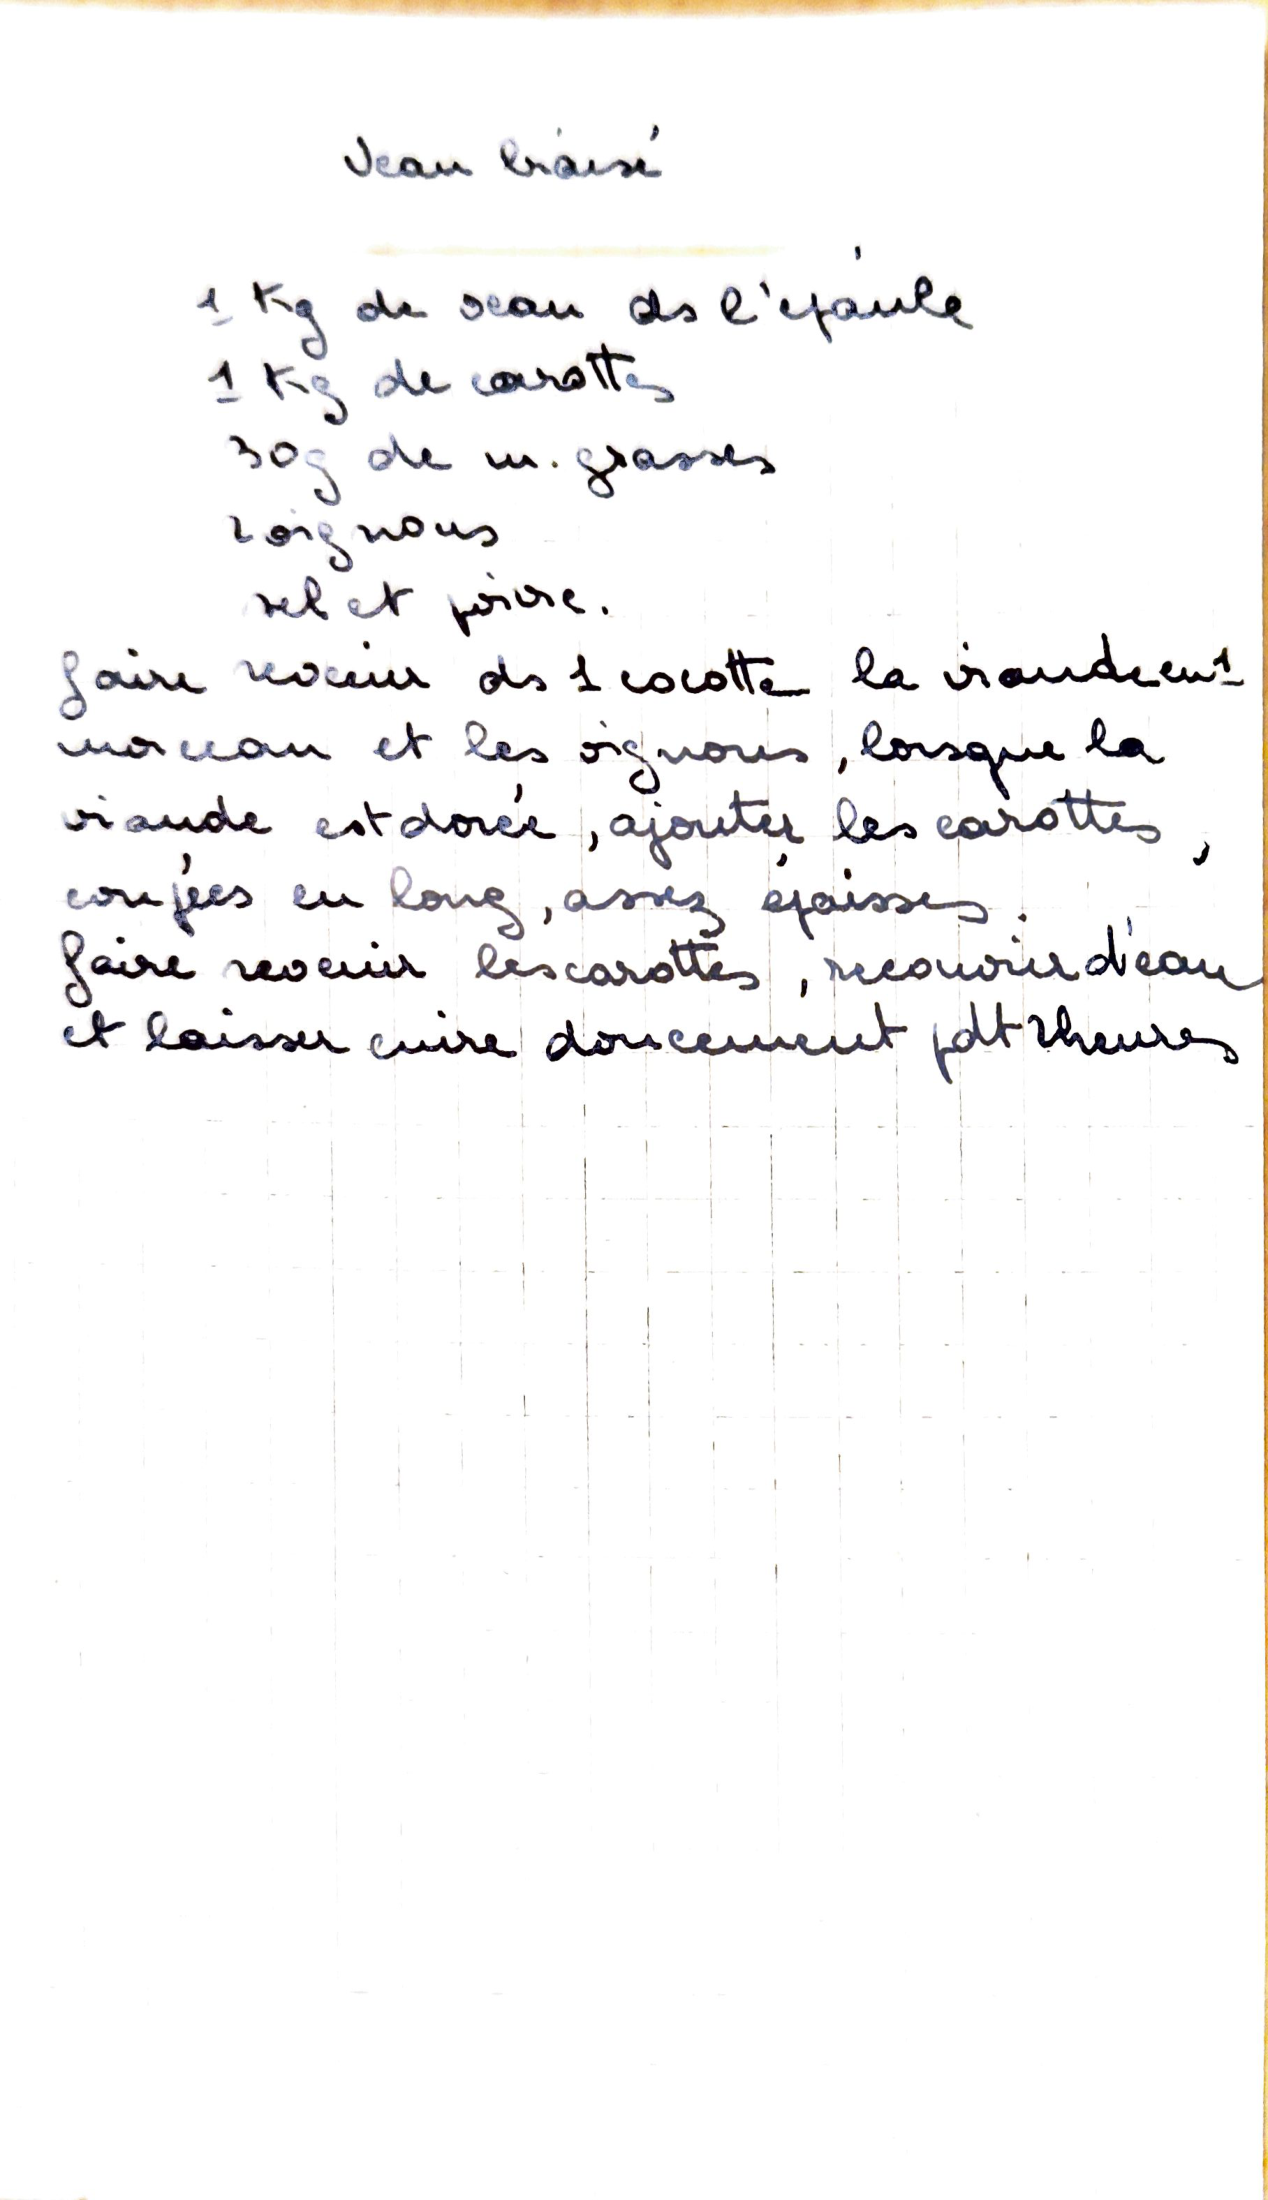 Veau braisé
1 Kg de veau ds l'épaule
1 Kg de carottes
30g de m. grasses
2 oignons
sel et poivre.
faire revenir ds 1 cocotte la viande en 1
morceau et les oignons, lorsque la
viande est dorée, ajouter les carottes,
coupées en long, assez épaisses.
faire revenir les carottes, recouvrir d'eau
et laisser cuire doucement pdt 2 heures